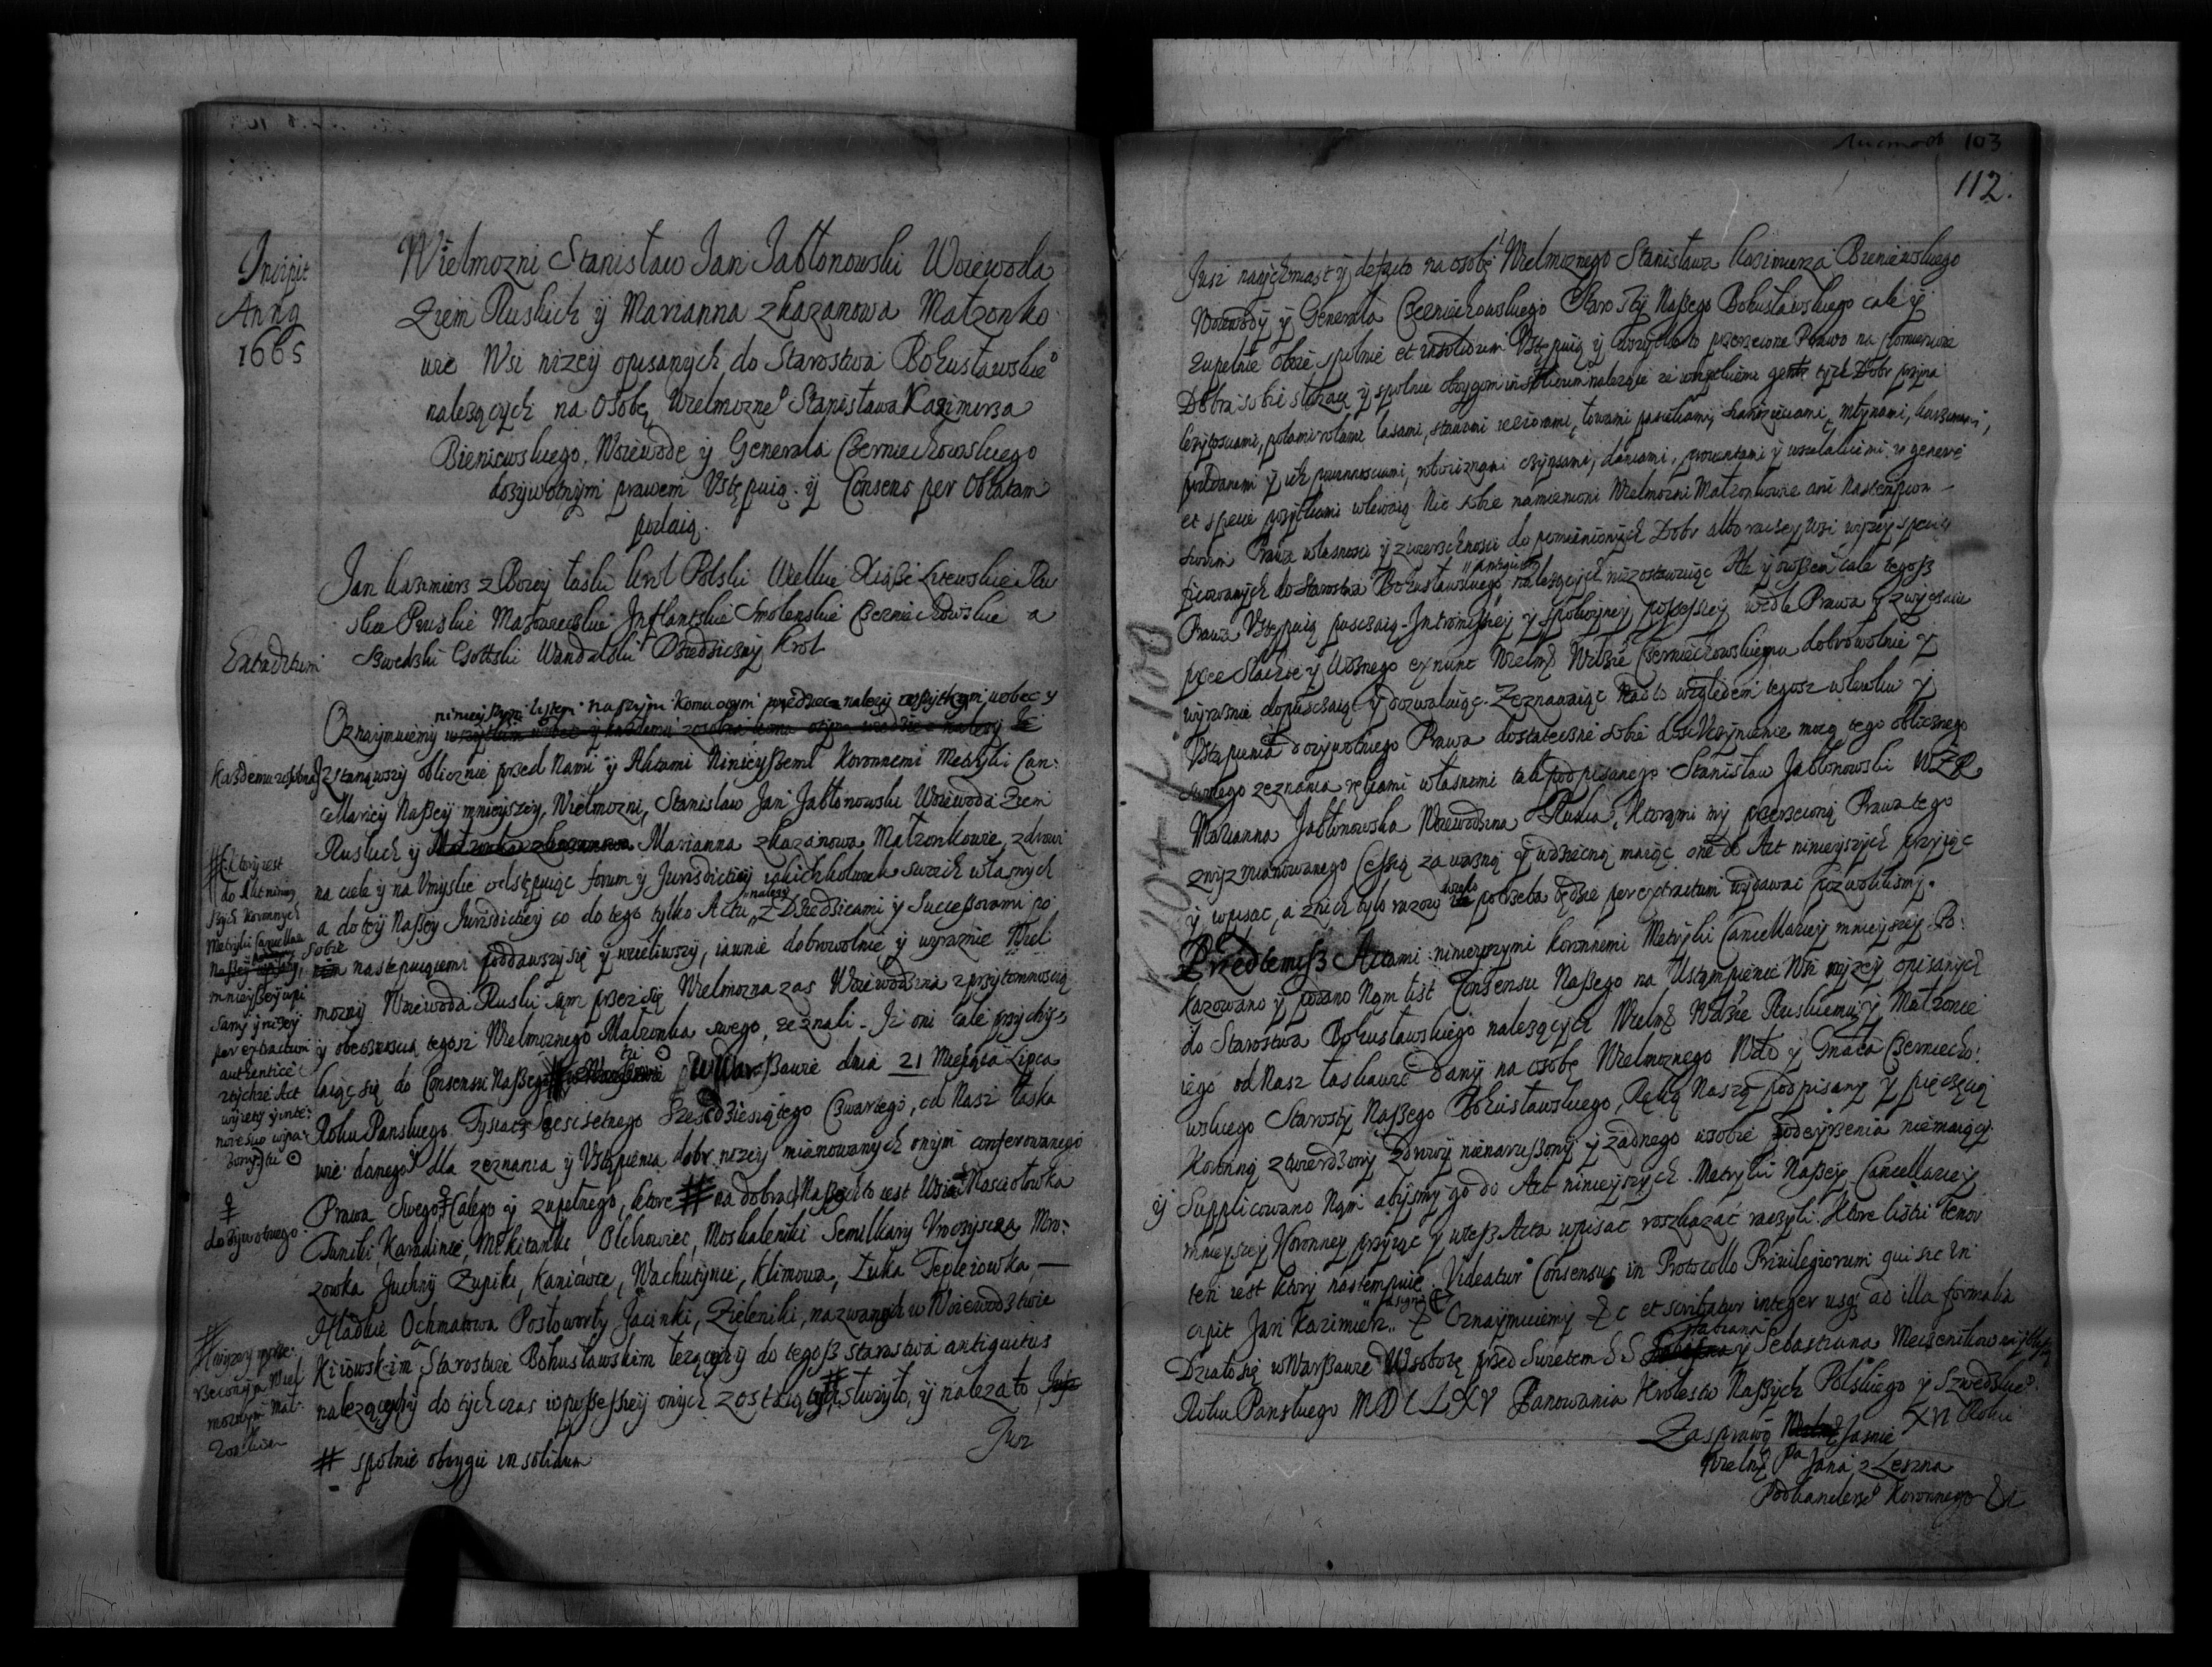 Incipit
Anng
1665
Wielmozni Stanisław Jan Jabłonowski Woiewoda
Ziem Ruskich ÿ Marianna z Kazanowa Małzonko
wie Wsi nizeÿ opisanÿch do Starostwa Bohusławskieo
nalezącÿch na Osobę Wielmozneo Stanisława Kazimirza
Bieniewskiego, Woiewodę ÿ Generała Czerniechowskiego
dozÿwotnÿm prawem Vstępuią. ÿ Consens per Oblatam
podaią.
Jan Kazimierz z Bozeÿ łaski Krol Polski Wielkie Xiąże Litewskie Ru
skie Pruskie Mazowieckie Inflantskie Smolenskie Czerniechowskie a
Extraditum
Szwedzki Gottski Wandalski Dziedzicznÿ Krol
ninieÿszÿm listem naszÿm Komu o tÿm wiedziec nalezÿ wszÿtkim wobec ÿ
Oznaÿmuiemÿ
Kazdemu zosobna
Iz stanąwszÿ oblicznie przed Nami ÿ Aktami Ninieÿszemi Koronnemi Metrÿki Can:
cellarieÿ Naszeÿ mnieÿszeÿ, Wielmozni, Stanisław Jan Jabłonowski Woiewoda Ziem
Ruskich ÿ Marianna z Kazanowa Małzonkowie, zdrowi
na ciele ÿ na Vmÿsle odstępuiąc forum ÿ Jurisdictieÿ iakichkolwiek swoich własnÿch
a do teÿ Naszeÿ Jurisdictieÿ co do tego tÿlko Actu nalezÿ z Dziedzicami ÿ Successorami po
sobie nastepuiącemi poddawszÿ się ÿ wcieliwszÿ, iawnie dobrowolnie ÿ wÿraznie Wiel
moznÿ Woiewoda Ruski sam przez się Wielmozna zas Woiewodzina z przÿtomnoscią
ÿ obecnoscią tegosz Wielmoznego Małzonka swego, zeznali. Iż oni całe przÿchÿ:
laiąc się do Consensu Naszego w Warszawie dnia 21 Miesiąca Lipca
Roku Panskiego Tÿsiącz Szescsetnego Szescdziesiątego Czwartego, od Nasz łaska
wie danego dla zeznania ÿ Vstąpienia dobr nizeÿ mianowanÿch onÿm conferowanego
Prawa Swego Całego ÿ zupełnego, ktore # na dobrach Naszÿch to iest Wsiach Kosciołowka
Tuniki, Karadinie, Mikitanki, Olchowiec, Moskaleniki Semilkarÿ Mro:
zowka Juchnÿ Zupiki, Kaniowce, Wachutÿnce, Klimowa, Łuka Teplezowka,
Hładkie Ochmatowa Postoworlÿ Jacinki, Zieleniki, nazwanÿch w Woiewodztwie
Kiiowskim a Starostwie Bohusławskim lezącÿch do tegosz Starostwa antiquitus
nalezącÿch do tÿch czas w possessieÿ onÿch zostaiącÿch słuzÿło, ÿ nalezało,
Jusz
# spolnie oboygu in solidum
# Ktorÿ iest
do Akt niniey
szych Koronnych
Metrÿki Cancellar
Naszeÿ
mnieyszeÿ wpi
sanÿ ÿ nizeÿ
per extractum
authentice
ztÿchze Act
wÿięty ÿ
do zÿwotnego
# wÿzeÿ mÿ
rzeczonÿm Wiel
moznÿm Mał:
zonkom
103
112.
Jusz natÿchmiast ÿ defacto na osobę Wielmoznego Stanisława Kazimierza Bieniewskiego
Woiewodÿ ÿ Generała Czerniechowskiego Starostÿ Naszego Bohusławskiego całe ÿ
zupełnie obie spolnie et insolidum Vstępuią ÿ przerzeczone Prawo na pomienione
Dobra sobie słuzące ÿ spolnie oboygom insolidum nalezące ze wszÿtkiemi tÿch Dobr przÿna
lezÿtosciami, polami rolami lasami, stawami ieziorami, łowami pasiekami, młÿnami, karczmami,
poddanemi ÿ ich powinnosciami, robociznami czÿnszami, daniami, prowentami ÿ wszelakiemi in genere
et specie pozÿtkami wlewaią Nic sobie namienioni Wielmozni Małzonkowie ani Nastempcom
swoim Prawa własnosci ÿ zwierzchnosci do pomienionÿch Dobr albo raczeÿ Wsi wÿzeÿ speci
ficowanÿch do Starostwa Bohusławskiego antiquitus nalezącÿch niezostawuiąc Ale ÿ owszem całe tegosz
Prawa Vstępuią puszczaią. Intromissieÿ ÿ spokoÿneÿ possessieÿ wedle Prawa ÿ zwÿczaiu
przez Szlachcie ÿ Woznego exnunc Wielmo Czerniechowskiemu dobrowolnie ÿ
wÿraznie dopuszczaią ÿ pozwalaiąc. Zeznawaiąc nadto względem tegosz wlewku ÿ
Vstąpienia dozÿwotniego Prawa dostateczne sobie dosÿc Vczÿnienie mocą tego oblicznego
swoiego zeznania rękami własnemi tak podpisanego Stanisław Jabłonowski WZR
Marianna Jabłonowska Woiewodzina Ruska, Ktorąmi mÿ przerzeczoną Prawa tego
zwÿz mianowanego Cessią za wazną ÿ wdzieczną maiąc onę do Akt ninieÿszych przÿiąc
ÿ wpisac, a z nich tÿlo razow wiele potrzeba będzie per extractum wÿdawac pozwolilismÿ.
Przed temisz Actami ninieÿszÿmi koronnemi Metrÿki Cancellarieÿ mnieÿszeÿ Po:
kazowano ÿ podano Nam list Consensu Naszego na Ustąmpienie Wsi nizeÿ opisanÿch
do Starostwa Bohusławskiego nalezącÿch Wielmo Ruskiemu ÿ Małzonce
iego od Nasz łaskawie danÿ na osobę Wielmoznego Wdo ÿ Gnała Czerniecho:
wskiego Starostÿ Naszego Bohusławskiego, Ręką Naszą podpisany ÿ pieczęcią
Koronną ztwierdzonÿ Zdrowÿ nienaruszonÿ ÿ zadnego wsobie podeÿzrenia niemaiącÿ
ÿ Supplicowano Nam abÿsmÿ go do Akt ninieÿszych Metrÿki Naszeÿ Cancellarieÿ
mnieÿszeÿ Koronneÿ przÿiąc ÿ w tesz Acta wpisac roszkazac raczÿli. Ktorego listu tenor
ten iest ktorÿ nastempuie. Videatur Consensus in Protocollo Privilegiorum qui sic in
cipit Jan Kazimierz &c Oznaÿmuiemÿ &c et scribatur integer usqs ad illa formalia
Działo się w Warszawie W sobotę przed Swietem S S Fabiana ÿ Sebastiana Męczenikow
Roku Panskiego MDCLXV Panowania Krolestw Naszÿch Polskiego ÿ Szwedzkieo
XVI Roku
Za sprawą Jasnie
Wielmo Pa Jana z Leszna
Podkanclerzeo Koronnego